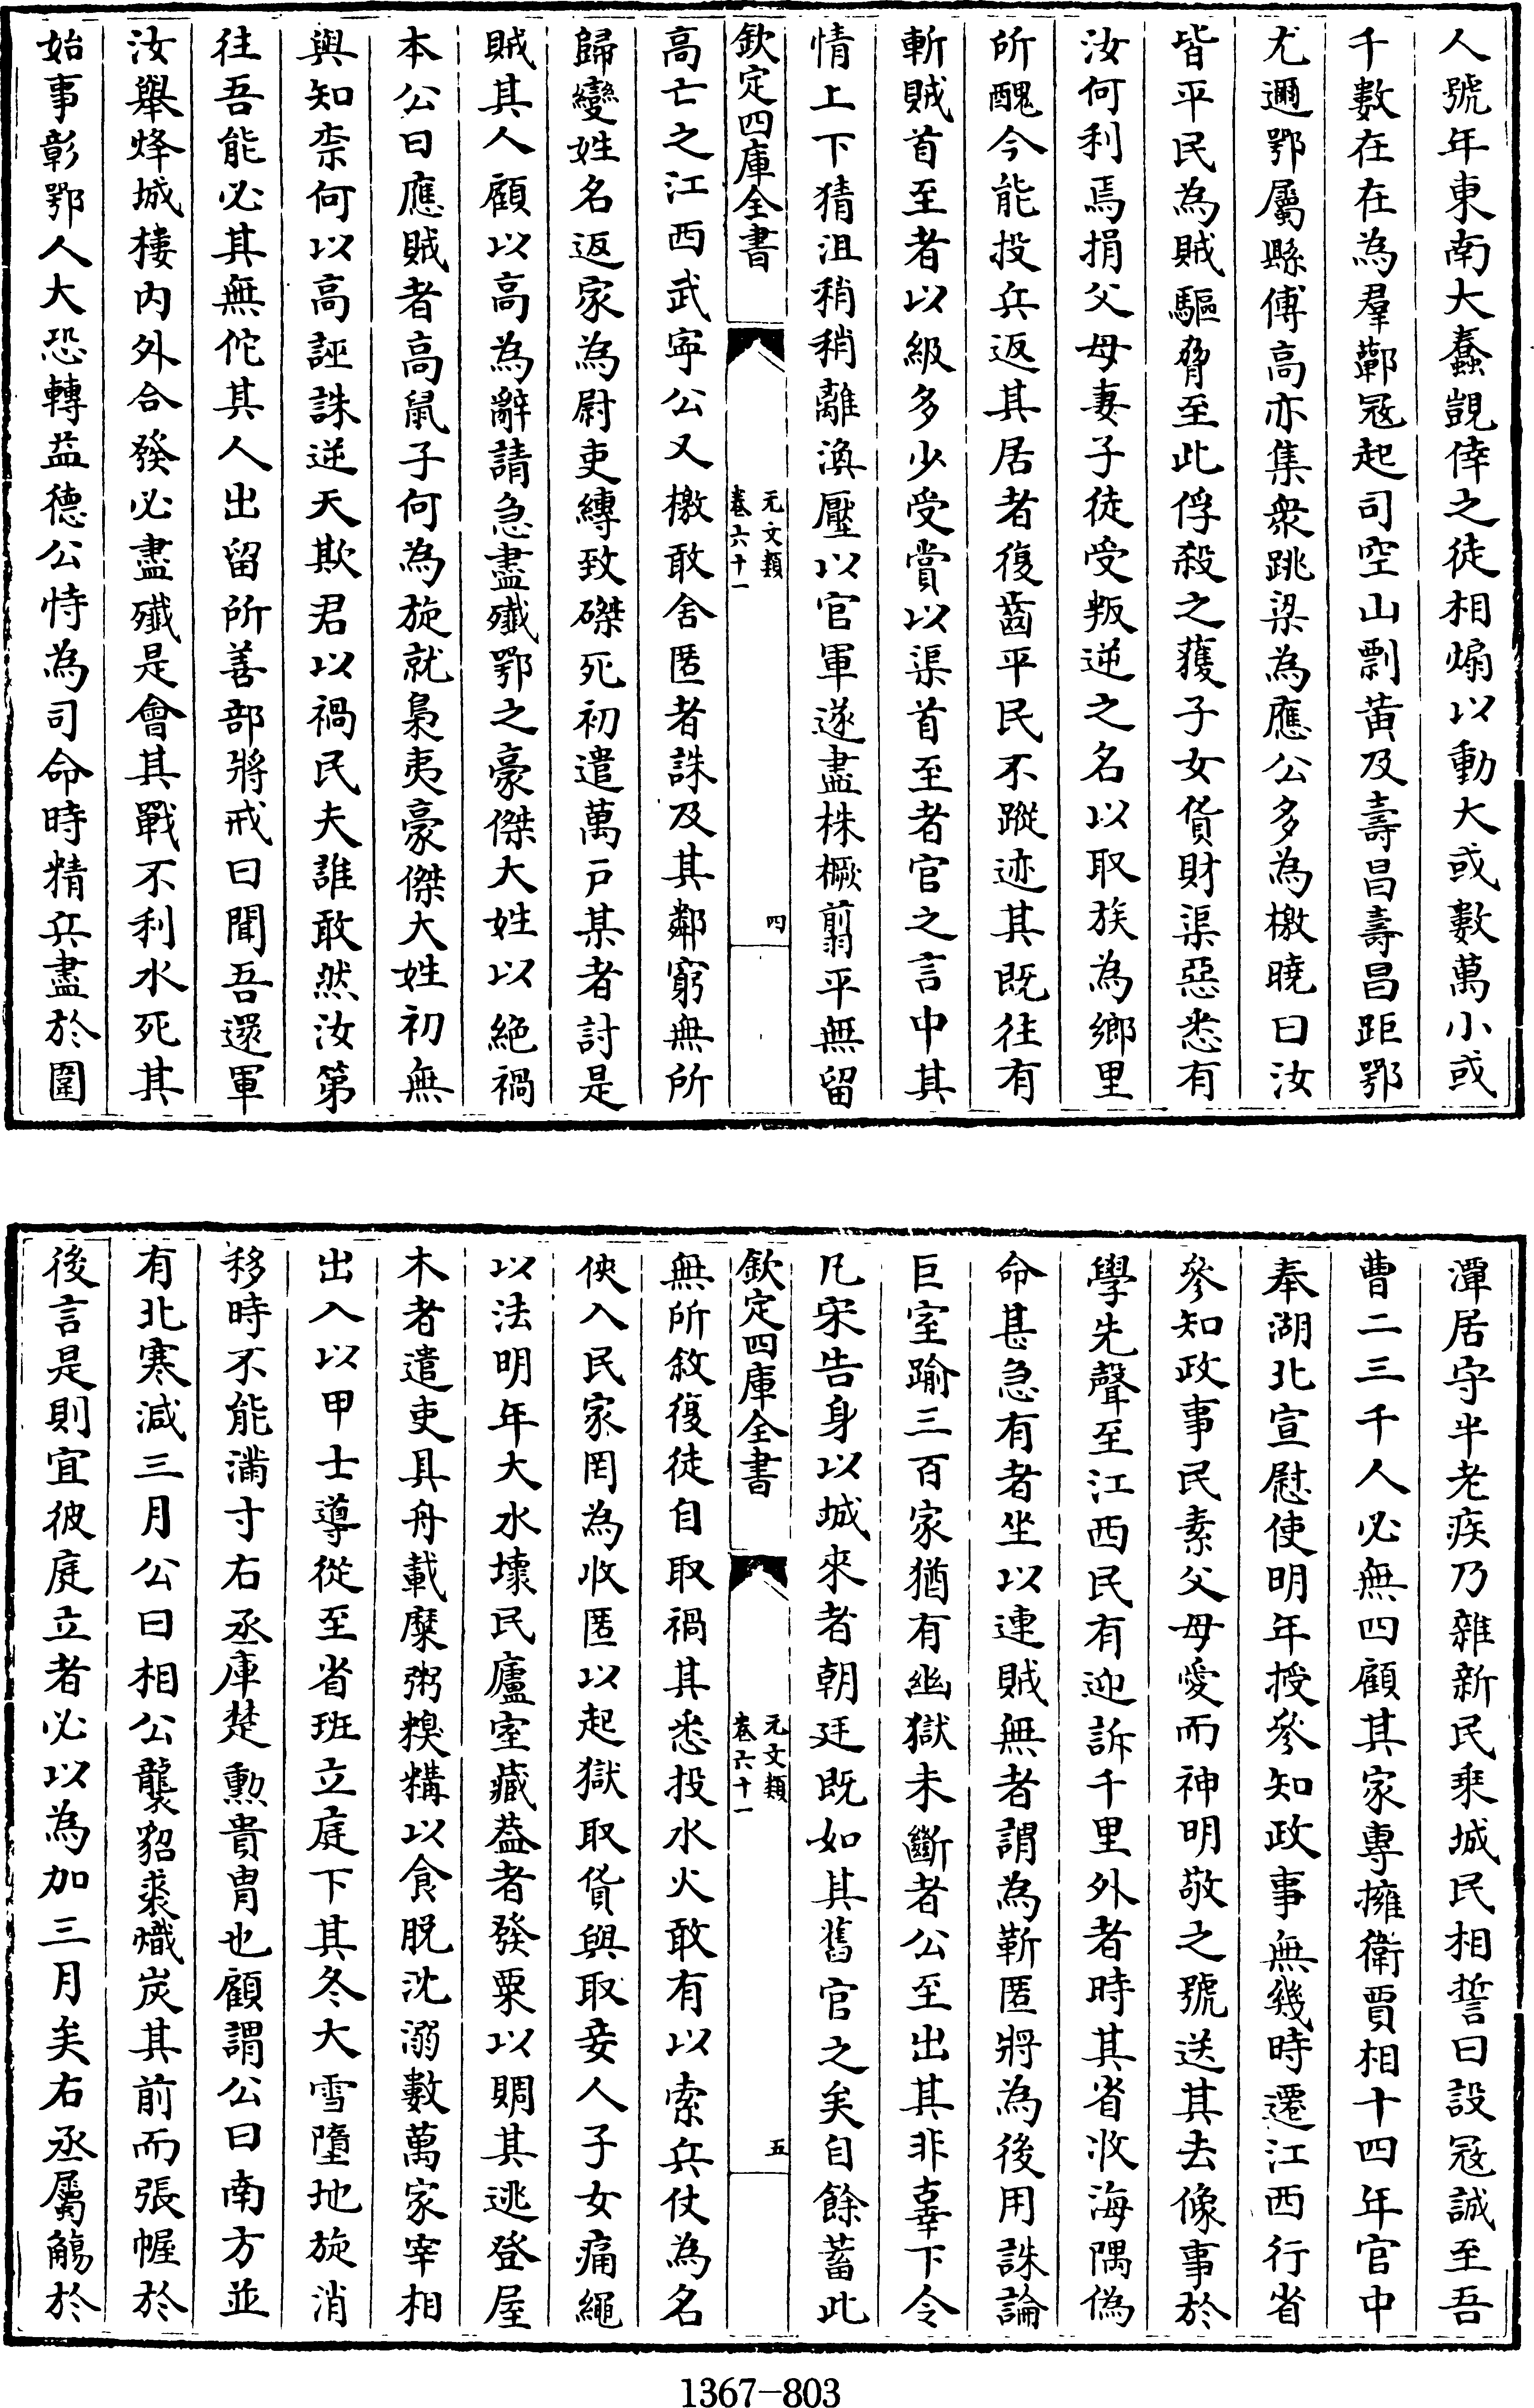 人號年東南大蠢覬倖之徒相煽以動大或數萬小或
千數在在為羣蘄冦起司空山剽黄及壽昌壽昌距鄂
尤邇鄂屬縣傅高亦集衆跳梁為應公多為檄曉曰汝
皆平民為賊驅脅至此俘殺之獲子女貨財渠惡悉有
汝何利焉捐父母妻子徒受叛逆之名以取族為鄉里
所醜今能投兵返其居者復齒平民不蹤迹其既往有
斬賊首至者以級多少受賞以渠首至者官之言中其
情上下猜沮稍稍離渙壓以官軍遂盡株橛翦平無留
欽定四庫全書
元文類
卷六十一
四
高亡之江西武寜公又檄敢舍匿者誅及其鄰窮無所
歸變姓名返家為尉吏縳致磔死初遣萬户某者討是
賊其人顧以高為辭請急盡殱鄂之豪傑大姓以絶禍
本公曰應賊者高鼠子何為旋就梟夷豪傑大姓初無
與知柰何以高誣誅逆天欺君以禍民夫誰敢然汝第
往吾能必其無佗其人出留所善部將戒曰聞吾還軍
汝舉烽城樓内外合發必盡殱是會其戰不利水死其
始事彰鄂人大恐轉益德公恃為司命時精兵盡於圍
潭居守半老疾乃雜新民乘城民相誓曰設冦誠至吾
曹二三千人必無四顧其家專擁衛賈相十四年官中
奉湖北宣慰使明年授參知政事無幾時遷江西行省
參知政事民素父母愛而神明敬之號送其去像事於
學先聲至江西民有迎訴千里外者時其省收海隅偽
命甚急有者坐以連賊無者謂為靳匿將為後用誅論
巨室踰三百家猶有幽獄未斷者公至出其非辜下令
凡宋告身以城來者朝廷既如其舊官之矣自餘蓄此
欽定四庫全書
元文類
卷六十一
五
無所敘復徒自取禍其悉投水火敢有以索兵仗為名
俠入民家罔為收匿以起獄取貨與取妾人子女痛繩
以法明年大水壊民廬室藏葢者發粟以賙其逃登屋
木者遣吏具舟載糜粥糗糒以食脱沈溺數萬家宰相
出入以甲士導從至省班立庭下其冬大雪墮地旋消
移時不能滿寸右丞庫楚勲貴胄也顧謂公曰南方並
有北寒減三月公曰相公襲貂裘熾炭其前而張幄於
後言是則宜彼庭立者必以為加三月矣右丞屬觴於
1367-803